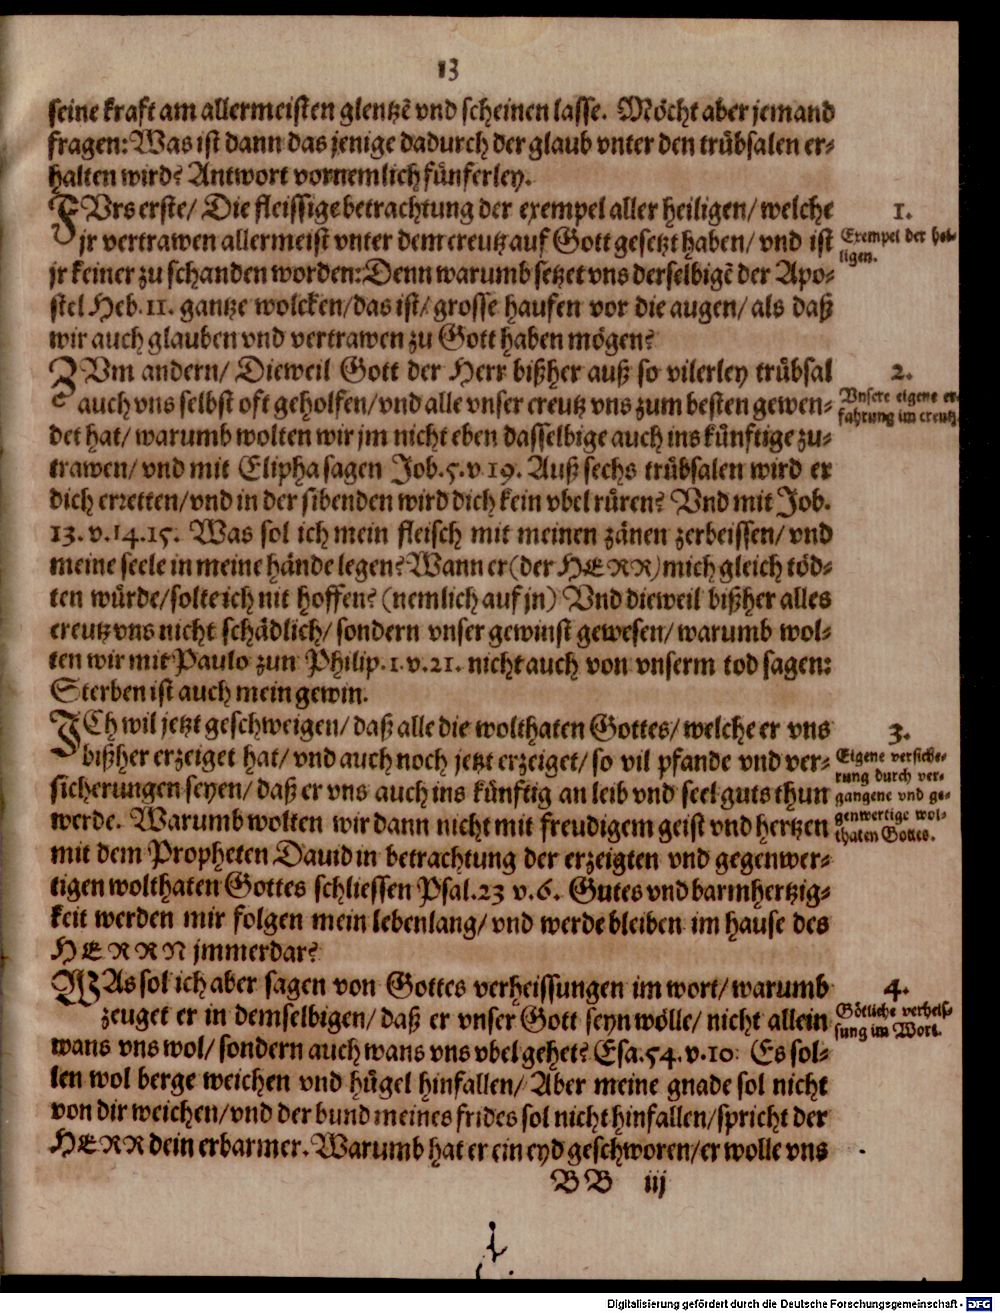 13
seine kraft am allermeisten glentzē vnd scheinen lasse. Möcht aber jemand
fragen: Was ist dann das jenige dadurch der glaub vnter den trübsalen er-
halten wird? Antwort vornemlich fünferley.
FVrs erste/ Die fleissige betrachtung der exempel aller heiligen/ welche
jr vertrawen allermeist vnter dem creutz auf Gott gesetzt haben/ vnd ist
jr keiner zu schanden worden: Denn warumb setzet vns derselbigē der Apo-
stel Heb. 11. gantze wolcken/ das ist/ grosse haufen vor die augen/ als daß
wir auch glauben vnd vertrawen zu Gott haben mögen?
1.
Exempel der hei-
ligen.
ZVm andern/ Dieweil Gott der Herr bißher auß so vilerley trübsal
auch vns selbst oft geholfen/ vnd alle vnser creutz vns zum besten gewen-
det hat/ warumb wolten wir jm nicht eben dasselbige auch ins künftige zu-
trawen/ vnd mit Elipha sagen Job. 5. v 19. Auß sechs trübsalen wird er
dich erretten/ vnd in der sibenden wird dich kein vbel rüren? Vnd mit Job.
13. v. 14. 15. Was sol ich mein fleisch mit meinen zänen zerbeissen/ vnd
meine seele in meine hände legen? Wann er (der HERR) mich gleich töd-
ten würde/ solte ich nit hoffen? (nemlich auf jn) Vnd dieweil bißher alles
creutz vns nicht schädlich/ sondern vnser gewinst gewesen/ warumb wol-
ten wir mit Paulo zun Philip. 1. v. 21. nicht auch von vnserm tod sagen:
Sterben ist auch mein gewin.
2.
Vnsere eigene er-
fahrung im creutz.
ICh wil jetzt geschweigen/ daß alle die wolthaten Gottes/ welche er vns
bißher erzeiget hat/ vnd auch noch jetzt erzeiget/ so vil pfande vnd ver-
sicherungen seyen/ daß er vns auch ins künftig an leib vnd seel guts thun
werde. Warumb wolten wir dann nicht mit freudigem geist vnd hertzen
mit dem Propheten Dauid in betrachtung der erzeigten vnd gegenwer-
tigen wolthaten Gottes schliessen Psal. 23 v. 6. Gutes vnd barmhertzig-
keit werden mir folgen mein lebenlang/ vnd werde bleiben im hause des
HERRN jmmerdar?
3.
Eigene versiche-
rung durch ver-
gangene vnd ge-
genwertige wol-
thaten Gottes.
WAs sol ich aber sagen von Gottes verheissungen im wort/ warumb
zeuget er in demselbigen/ daß er vnser Gott seyn wölle/ nicht allein
wans vns wol/ sondern auch wans vns vbel gehet? Esa. 54. v. 10. Es sol-
len wol berge weichen vnd hügel hinfallen/ Aber meine gnade sol nicht
von dir weichen/ vnd der bund meines frides sol nicht hinfallen/ spricht der
HERR dein erbarmer. Warumb hat er ein eyd geschworen/ er wolle vns
4.
Götliche verheis-
sung im Wort.
BB iij
Digitalisierung gefördert durch die Deutsche Forschungsgemeinschaft - DFG